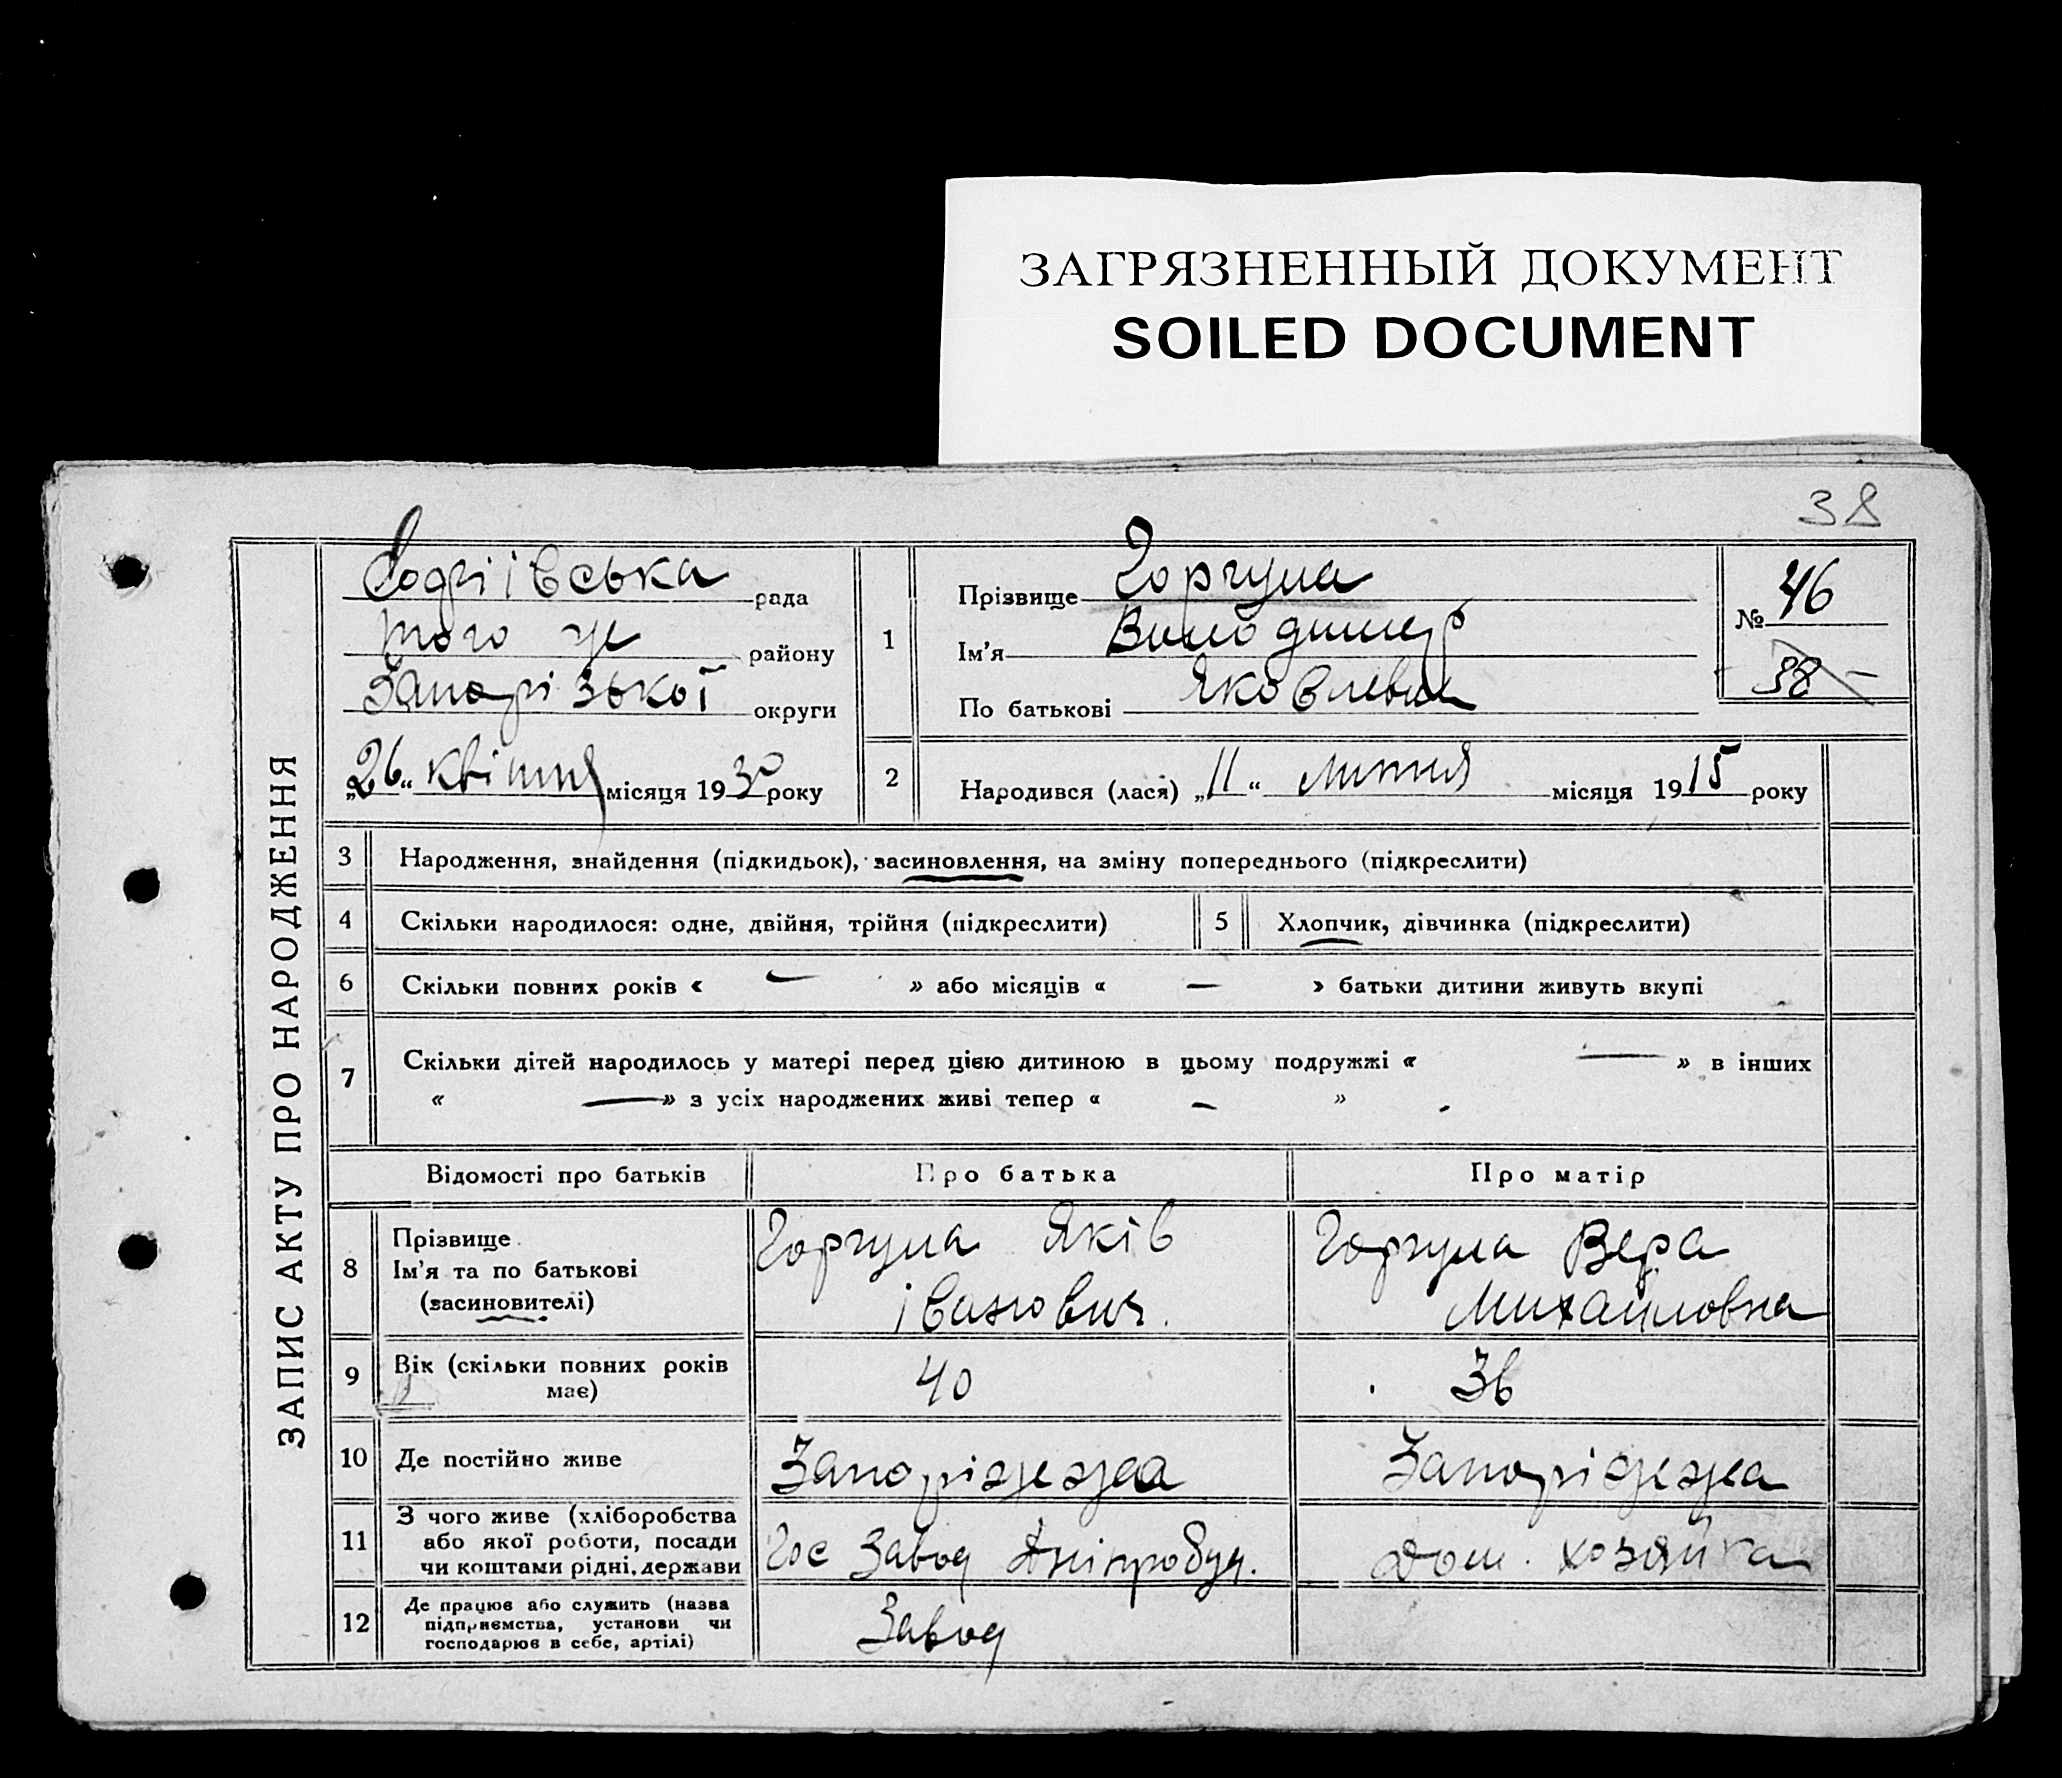 ЗАГРЯЗНЕННЫЙ ДОКУМЕНТ
SOILED DOCUMENT
38
ЗАПИС АКТУ ПРО НАРОДЖЕННЯ
Софіївська рада
того же району
Запорізької округи
„26“ квітня місяця 1930 року
1
Прізвище Горгула
Ім'я Володимир
По батькові Яковлевич
№ 46
38
2 Народився (лася) „11“ липня місяця 1915 року
3 Народження, знайдення (підкидьок), засиновлення, на зміну попереднього (підкреслити)
4 Скільки народилося: одне, двійня, трійня (підкреслити) 5 Хлопчик, дівчинка (підкреслити)
6 Скільки повних років « — » або місяців « — » батьки дитини живуть вкупі
7 Скільки дітей народилось у матері перед цією дитиною в цьому подружжі « — » в інших
« — » з усіх народжених живі тепер « — »
Відомості про батьків Про батька Про матір
8 Прізвище
Ім'я та по батькові
(засиновителі)
Горгула Яків
Іванович.
Горгула Вера
Михайловна
9 Вік (скільки повних років
має)
40
36
10 Де постійно живе Запоріжжа Запоріжжа
11 З чого живе (хліборобства
або якої роботи, посади
чи коштами рідні, держави
Гос Завод Дніпробуд.
Дом. хозяйка
12 Де працює або служить (назва
підприємства, установи чи
господарює в себе, артілі)
Завод